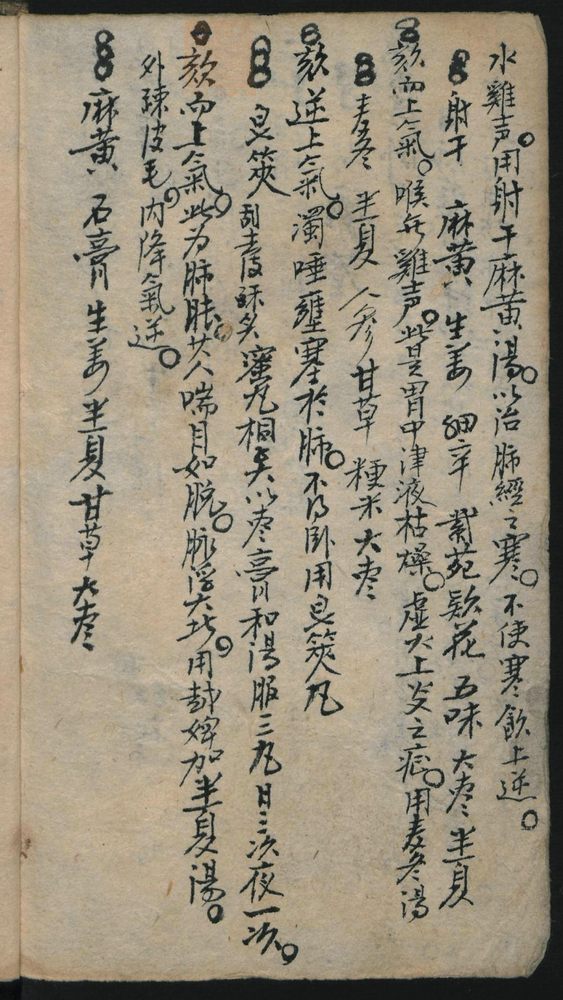 水雞声。用射干麻黄湯。以治肺經之寒。不使寒飲上逆。
射干 麻黄 生姜 細辛 紫苑 款花 五味 大枣 半夏
欬而上氣。喉無雞声。此是胃中津液枯燥。虚火上炎之症。用麦冬湯
麦冬 半夏 人參 甘草 粳米 大枣
欬逆上氣。濁唾壅塞於肺。不得卧用皂筴丸
皂筴 刮去皮酥炙 蜜丸桐大以枣膏和湯服三丸日三次夜一次。
欬而上氣。此为肺脹。其人喘目如脱。脉浮大者。用越婢加半夏湯。
外疎皮毛。内降氣逆。
麻黄 石膏 生姜 半夏 甘草 大枣